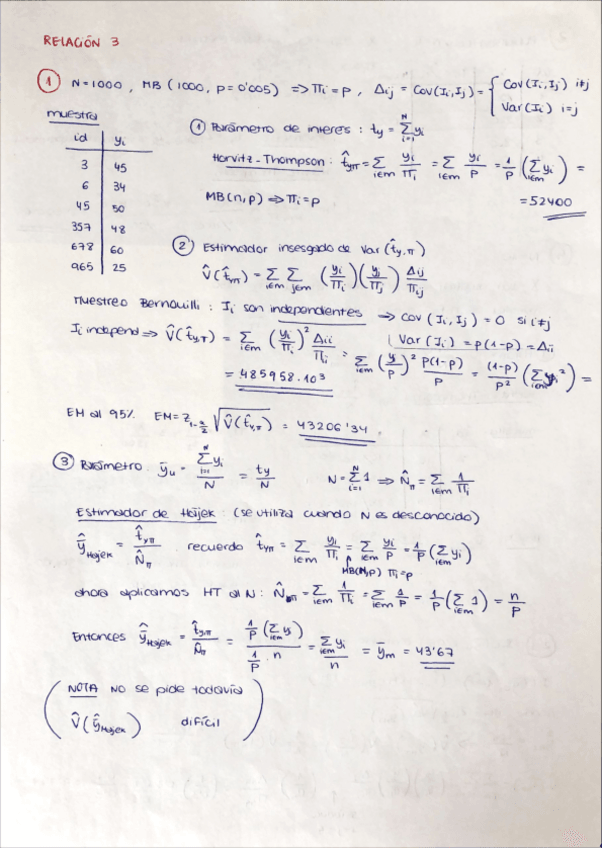 RELACIÓN 3
① N=1000, MB (1000, p=0'005) => Πi = p, Δij = Cov(Ii,Ij) = { Cov(Ii,Ij) i≠j
Var(Ii) i=j
muestra
id yi
3 45
6 34
45 50
357 48
678 60
965 25
① Parámetro de interés : ty = Σ_{i=1}^{N} yi
Horvitz-Thompson : t̂yπ = Σ_{i∈m} yi/Πi = Σ_{i∈m} yi/p = 1/p (Σ_{i∈m} yi) =
MB(n,p) => Πi = p
= 52400
② Estimador insesgado de Var(t̂y,π)
V̂(t̂yπ) = Σ_{i∈m} Σ_{j∈m} (yi/Πi)(yj/Πj) Δij/Πij
Muestreo Bernouilli : Ii son independientes => Cov(Ii,Ij) = 0 si i≠j
Var(Ii) = p(1-p) = Δii
Ii independ => V̂(t̂y,π) = Σ_{i∈m} (yi/Πi)² Δii/Πi = Σ_{i∈m} (yi/p)² p(1-p)/p = (1-p)/p² (Σ_{i∈m} yi²) =
= 485958.10³
EM al 95% EM = Z_{1-α/2} √V̂(t̂y,π) = 43206'34
③ Parámetro. ȳu = Σ_{i=1}^{N} yi / N = ty/N N = Σ_{i=1}^{N} 1 => N̂π = Σ_{i∈m} 1/Πi
Estimador de Hájek : (se utiliza cuando N es desconocido)
ŷHajek = t̂yπ/N̂π . recuerdo t̂yπ = Σ_{i∈m} yi/Πi = Σ_{i∈m} yi/p = 1/p (Σ_{i∈m} yi)
MB(N,p) Πi = p
ahora aplicamos HT al N : N̂π = Σ_{i∈m} 1/Πi = Σ_{i∈m} 1/p = 1/p (Σ_{i∈m} 1) = n/p
Entonces ŷHajek = t̂yπ/N̂π = 1/p (Σ_{i∈m} yi) / 1/p · n = Σ_{i∈m} yi / n = ȳm = 43'67
NOTA NO se pide todavía
V̂(ŷHajek) difícil